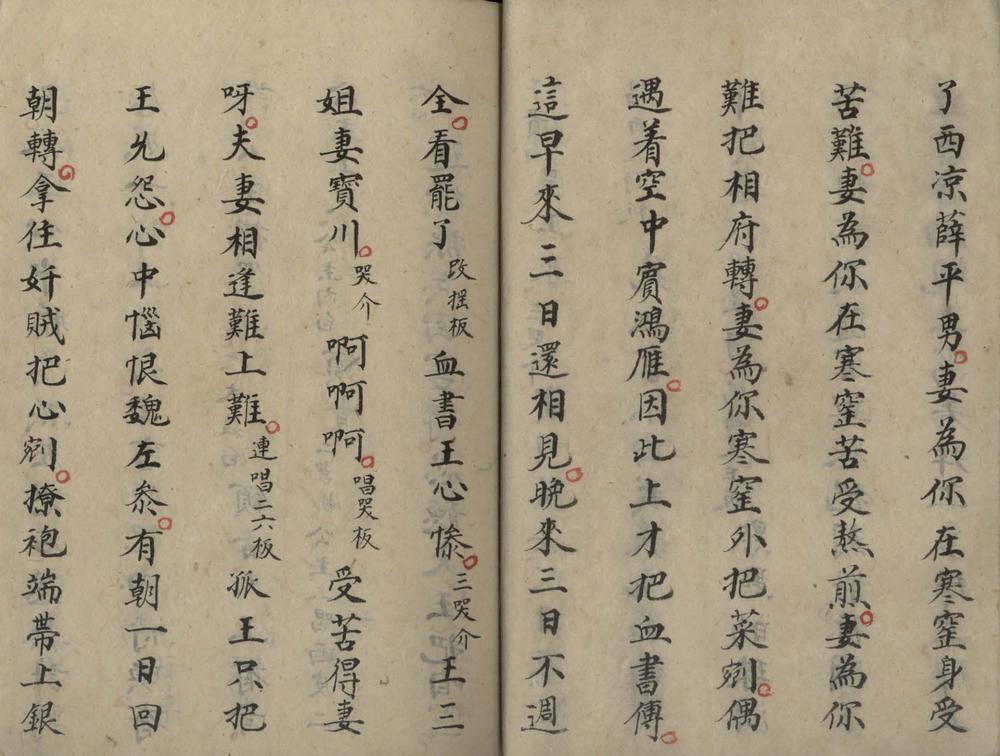 了西凉薛平男妻為你在寒窑身受
苦難妻為你在寒窑苦受熬煎妻為你
難把相府轉妻為你寒窑外把菜剜偶
遇着空中賓鴻雁因此上才把血書傳
這早來三日還相見晚來三日不週
全看罷了改摇板血書王心惨三哭介王三
姐妻寳川哭介啊啊啊唱哭板受苦得妻
呀夫妻相逢難上難連唱二六板孤王只把
王允怨心中惱恨魏左叅有朝一日回
朝轉拿住奸賊把心剜撩袍端帶上銀